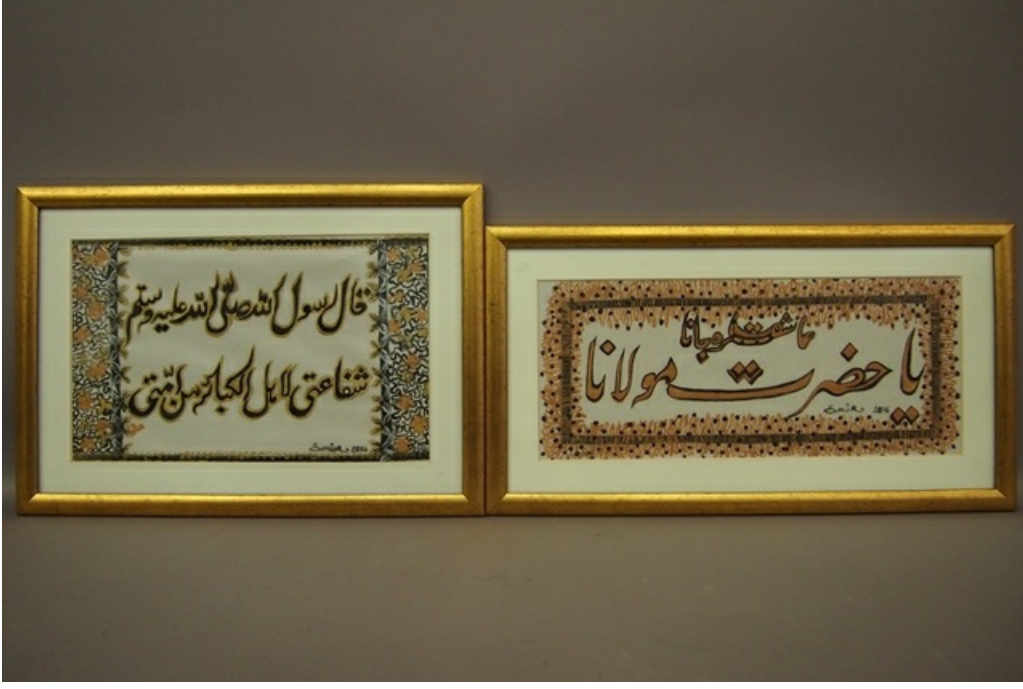 قال رسول الله صلى الله عليه وسلم
شفاعتي لاهل الكبائر من امّتي
يا حضرت مولانا